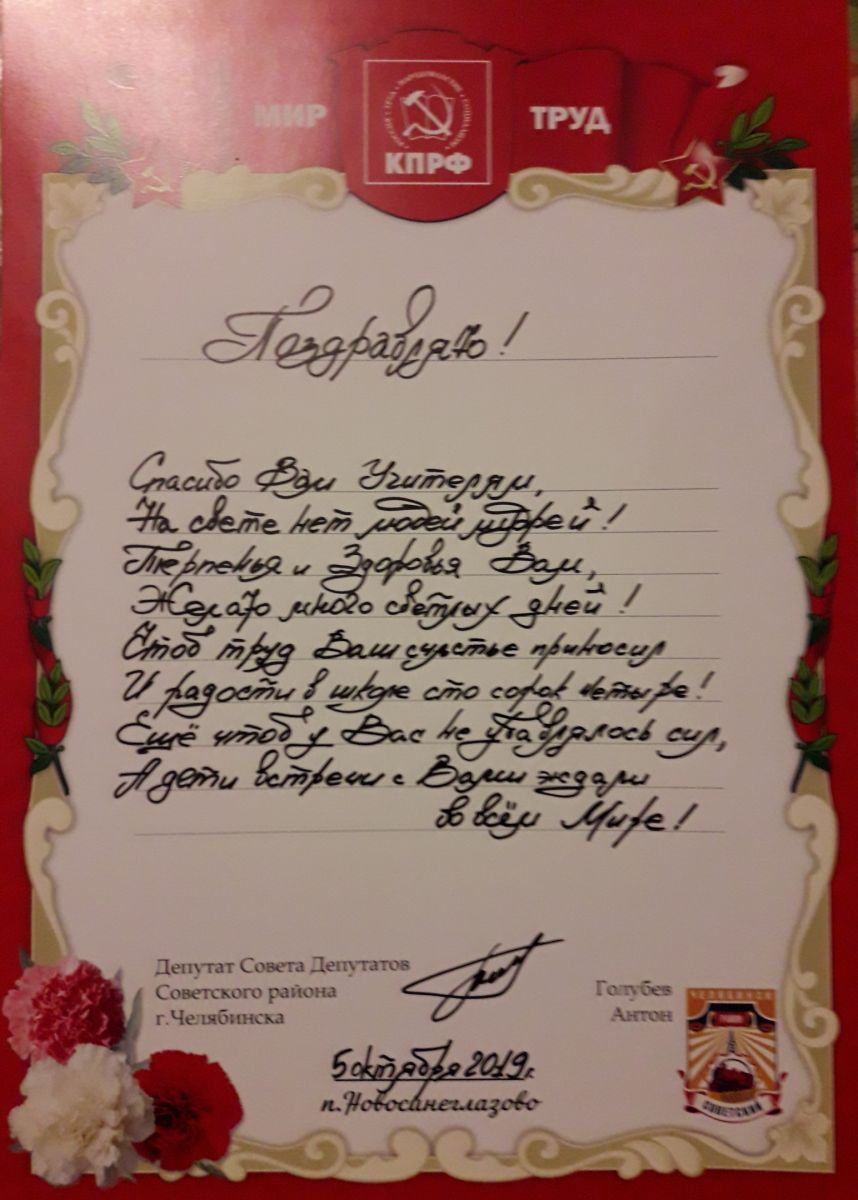 МИР ТРУД
РОССИЯ • ТРУД • НАРОДОВЛАСТИЕ • СОЦИАЛИЗМ
КПРФ
Поздравляю!
Спасибо Вам Учителям,
На свете нет людей мудрей!
Терпенья и Здоровья Вам,
Желаю много светлых дней!
Чтоб труд Ваш счастье приносил
И радости в школе сто сорок четыре!
Ещё чтоб у Вас не убавлялось сил,
А дети встречи с Вами ждали
во всём Мире!
Депутат Совета Депутатов
Советского района
г.Челябинска
Голубев
Антон
5 октября 2019г.
п.Новосинеглазово
ЧЕЛЯБИНСК
СОВЕТСКИЙ